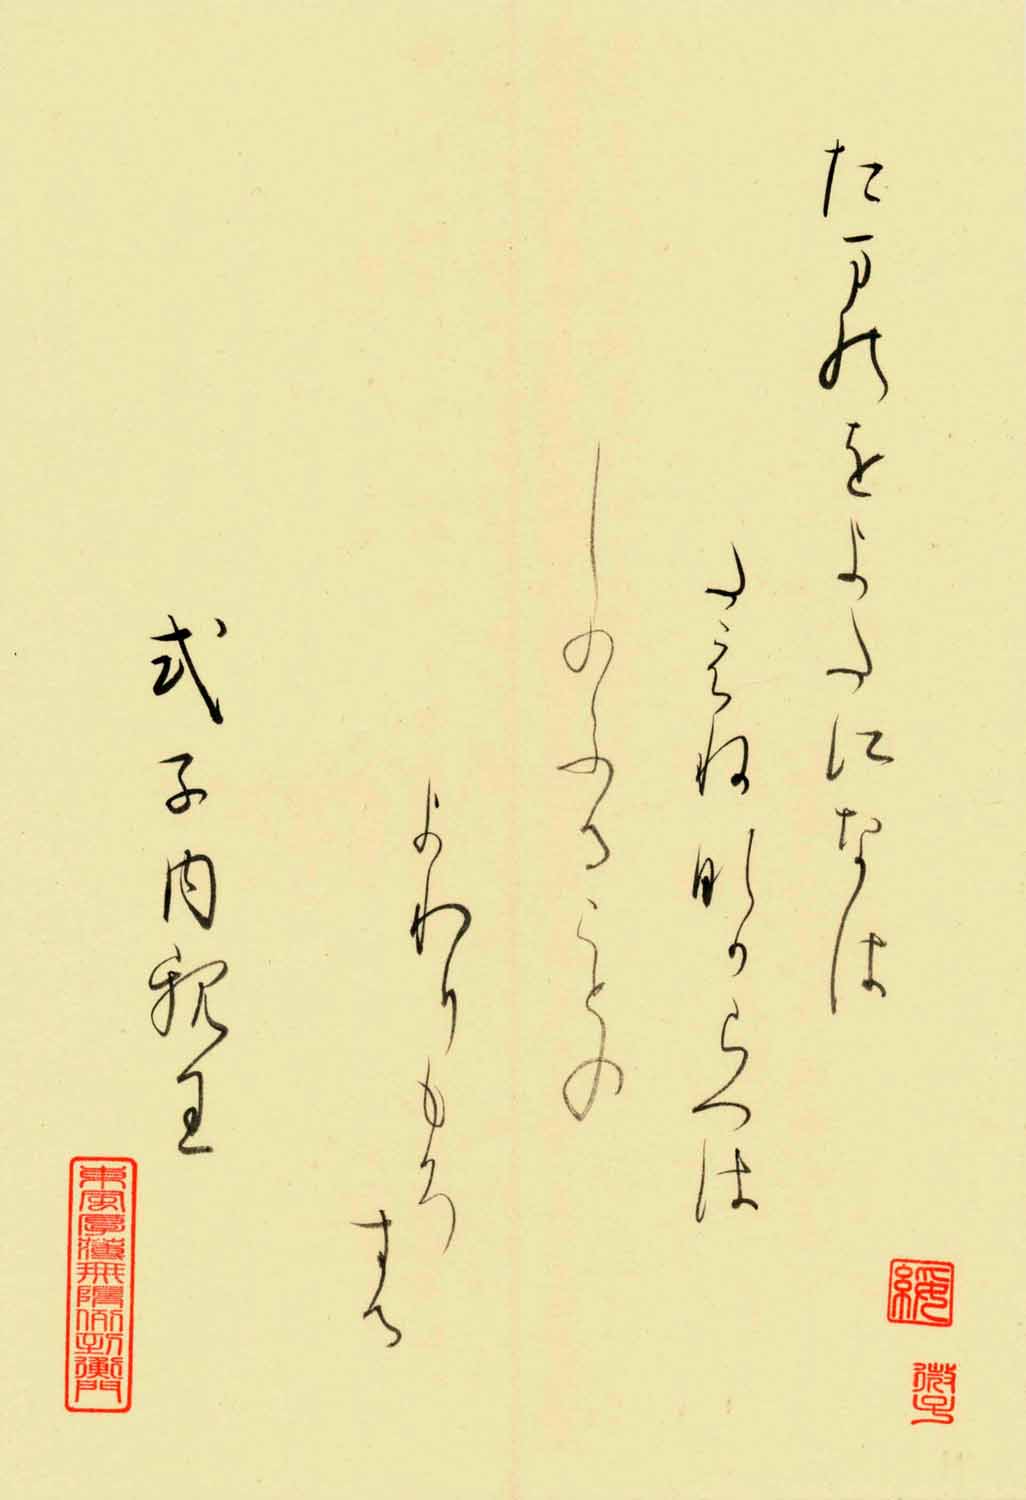 たまのをよたえなは
たえねなからへは
しのふることの
よわりもそ
する
式子内親王